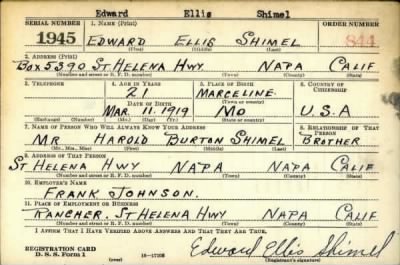 Edward Ellis Shimel
SERIAL NUMBER 1. NAME (Print) ORDER NUMBER
1945 EDWARD ELLIS SHIMEL 844
(First) (Middle) (Last)
2. ADDRESS (Print)
Box 5390 ST HELENA HWY NAPA CALIF
(Number and street or R. F. D. number) (Town) (County) (State)
3. TELEPHONE 4. AGE IN YEARS 5. PLACE OF BIRTH 6. COUNTRY OF CITIZENSHIP
21 MARCELINE
DATE OF BIRTH (Town or county)
MAR 11 1919 MO U.S.A
(Exchange) (Number) (Mo.) (Day) (Yr.) (State or country)
7. NAME OF PERSON WHO WILL ALWAYS KNOW YOUR ADDRESS 8. RELATIONSHIP OF THAT PERSON
MR HAROLD BURTON SHIMEL BROTHER
(Mr., Mrs., Miss) (First) (Middle) (Last)
9. ADDRESS OF THAT PERSON
ST HELENA HWY NAPA NAPA CALIF
(Number and street or R. F. D. number) (Town) (County) (State)
10. EMPLOYER'S NAME
FRANK JOHNSON.
11. PLACE OF EMPLOYMENT OR BUSINESS
RANCHER. ST HELENA HWY NAPA CALIF
(Number and street or R. F. D. number) (Town) (County) (State)
I AFFIRM THAT I HAVE VERIFIED ABOVE ANSWERS AND THAT THEY ARE TRUE.
REGISTRATION CARD
D. S. S. Form 1 (over) Edward Ellis Shimel
(Registrant's signature)